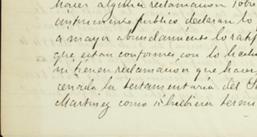 hacer alguna reclamacion sobre
instrumento publico declaran lo
a mayor abundamiento lo ratif
que estan conformes con lo hecho
ni tienen reclamacion que hacer
cerrada la testamentaria del S
Martinez como si hubiera term